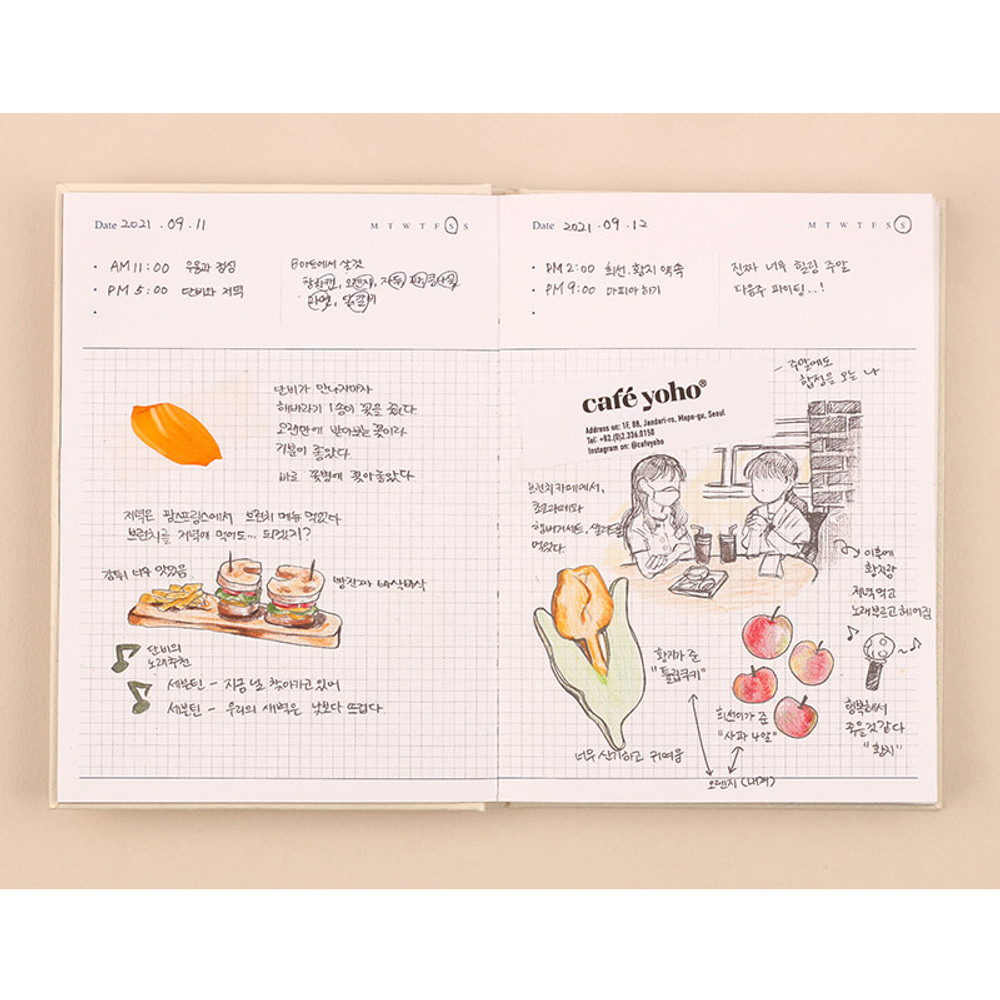 Date 2021 .09 .11
M T W T F S S
· AM 11:00 우용과 점심
· PM 5:00 단비와 저녁
·
마트에서 살것
오렌지, 자두
닭갈비
단비가 만나자마자
해바라기 1송이 꽃을 줬다
오랜만에 받아보는 꽃이라
기분이 좋았다.
바로 꽃병에 꽂아놓았다
저녁은 팜스프링스에서 브런치 메뉴 먹었다
브런치를 저녁에 먹어도... 되겠지?
감튀 너무 맛있음
빵진짜 바삭바삭
단비의
노래추천
세븐틴 - 지금 널 찾아가고 있어
세븐틴 - 우리의 새벽은 낮보다 뜨겁다
Date 2021 .09 .12
M T W T F S S
· PM 2:00 희선.황지 약속
· PM 9:00 마피아 하기
·
진짜 너무 힐링 주말
다음주 파이팅..!
- 주말에도
합정을 오는 나
café yoho®
Address on: 1F, 88, Jandari-ro, Mapo-gu, Seoul
Tel: +82.(0)2.336.0150
Instagram on: @cafeyoho
브런치카페에서,
햄버거세트, 샐러드를
먹었다.
이후에
황지랑
저녁먹고
노래부르고 헤어짐
황지가 준
"튤립쿠키"
희선이가 준
"사과 4알"
행복해서
죽을것 같다
"황지"
너무 신기하고 귀여움
오렌지 (내꺼)